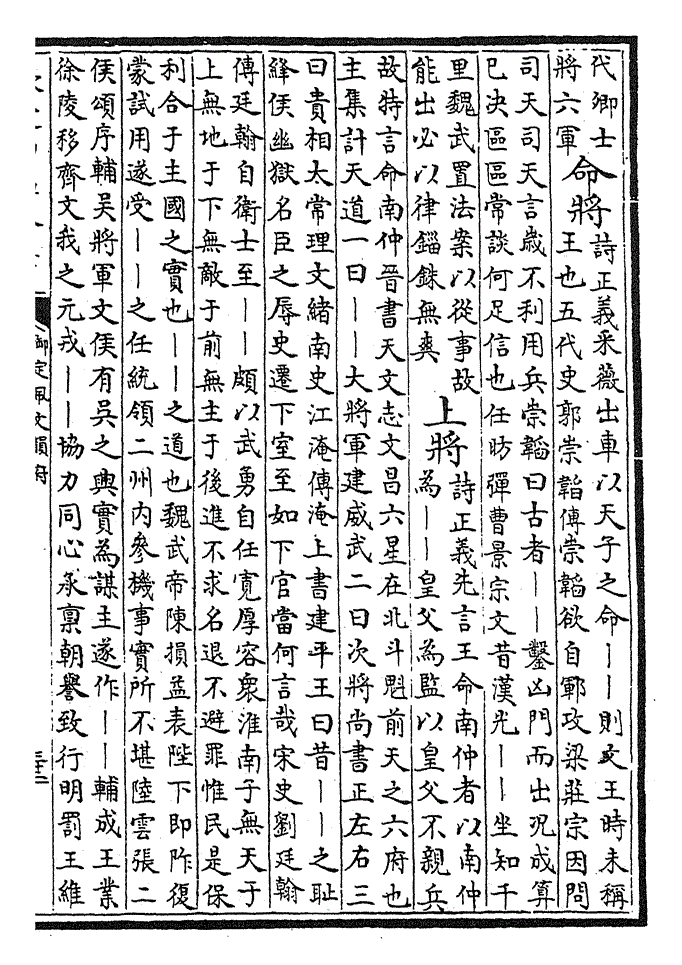 代卿士
將六軍
命將
詩正義采薇出車以天子之命——則文王時未稱
王也五代史郭崇韜傳崇韜欲自鄆攻梁莊宗因問
司天司天言歲不利用兵崇韜曰古者——鑿凶門而出況成算
已決區區常談何足信也任昉彈曹景宗文昔漢光——坐知千
里魏武置法案以從事故
能出必以律錙銖無爽
上將
詩正義先言王命南仲者以南仲
為——皇父為監以皇父不親兵
故特言命南仲晉書天文志文昌六星在北斗魁前天之六府也
主集計天道一曰——大將軍建威武二曰次將尚書正左右三
曰貴相太常理文緒南史江淹傳淹上書建平王曰昔——之恥
絳侯幽獄名臣之辱史遷下室至如下官當何言哉宋史劉廷翰
傳廷翰自衛士至——頗以武勇自任寬厚容衆淮南子無天于
上無地于下無敵于前無主于後進不求名退不避罪惟民是保
利合于主國之實也——之道也魏武帝陳損益表陛下即阼復
蒙試用遂受——之任統領二州内參機事實所不堪陸雲張二
侯頌序輔吳將軍文侯有吳之輿實為謀主遂作——輔成王業
徐陵移齊文我之元戎——協力同心承稟朝譽致行明罰王維
御定佩文韻府